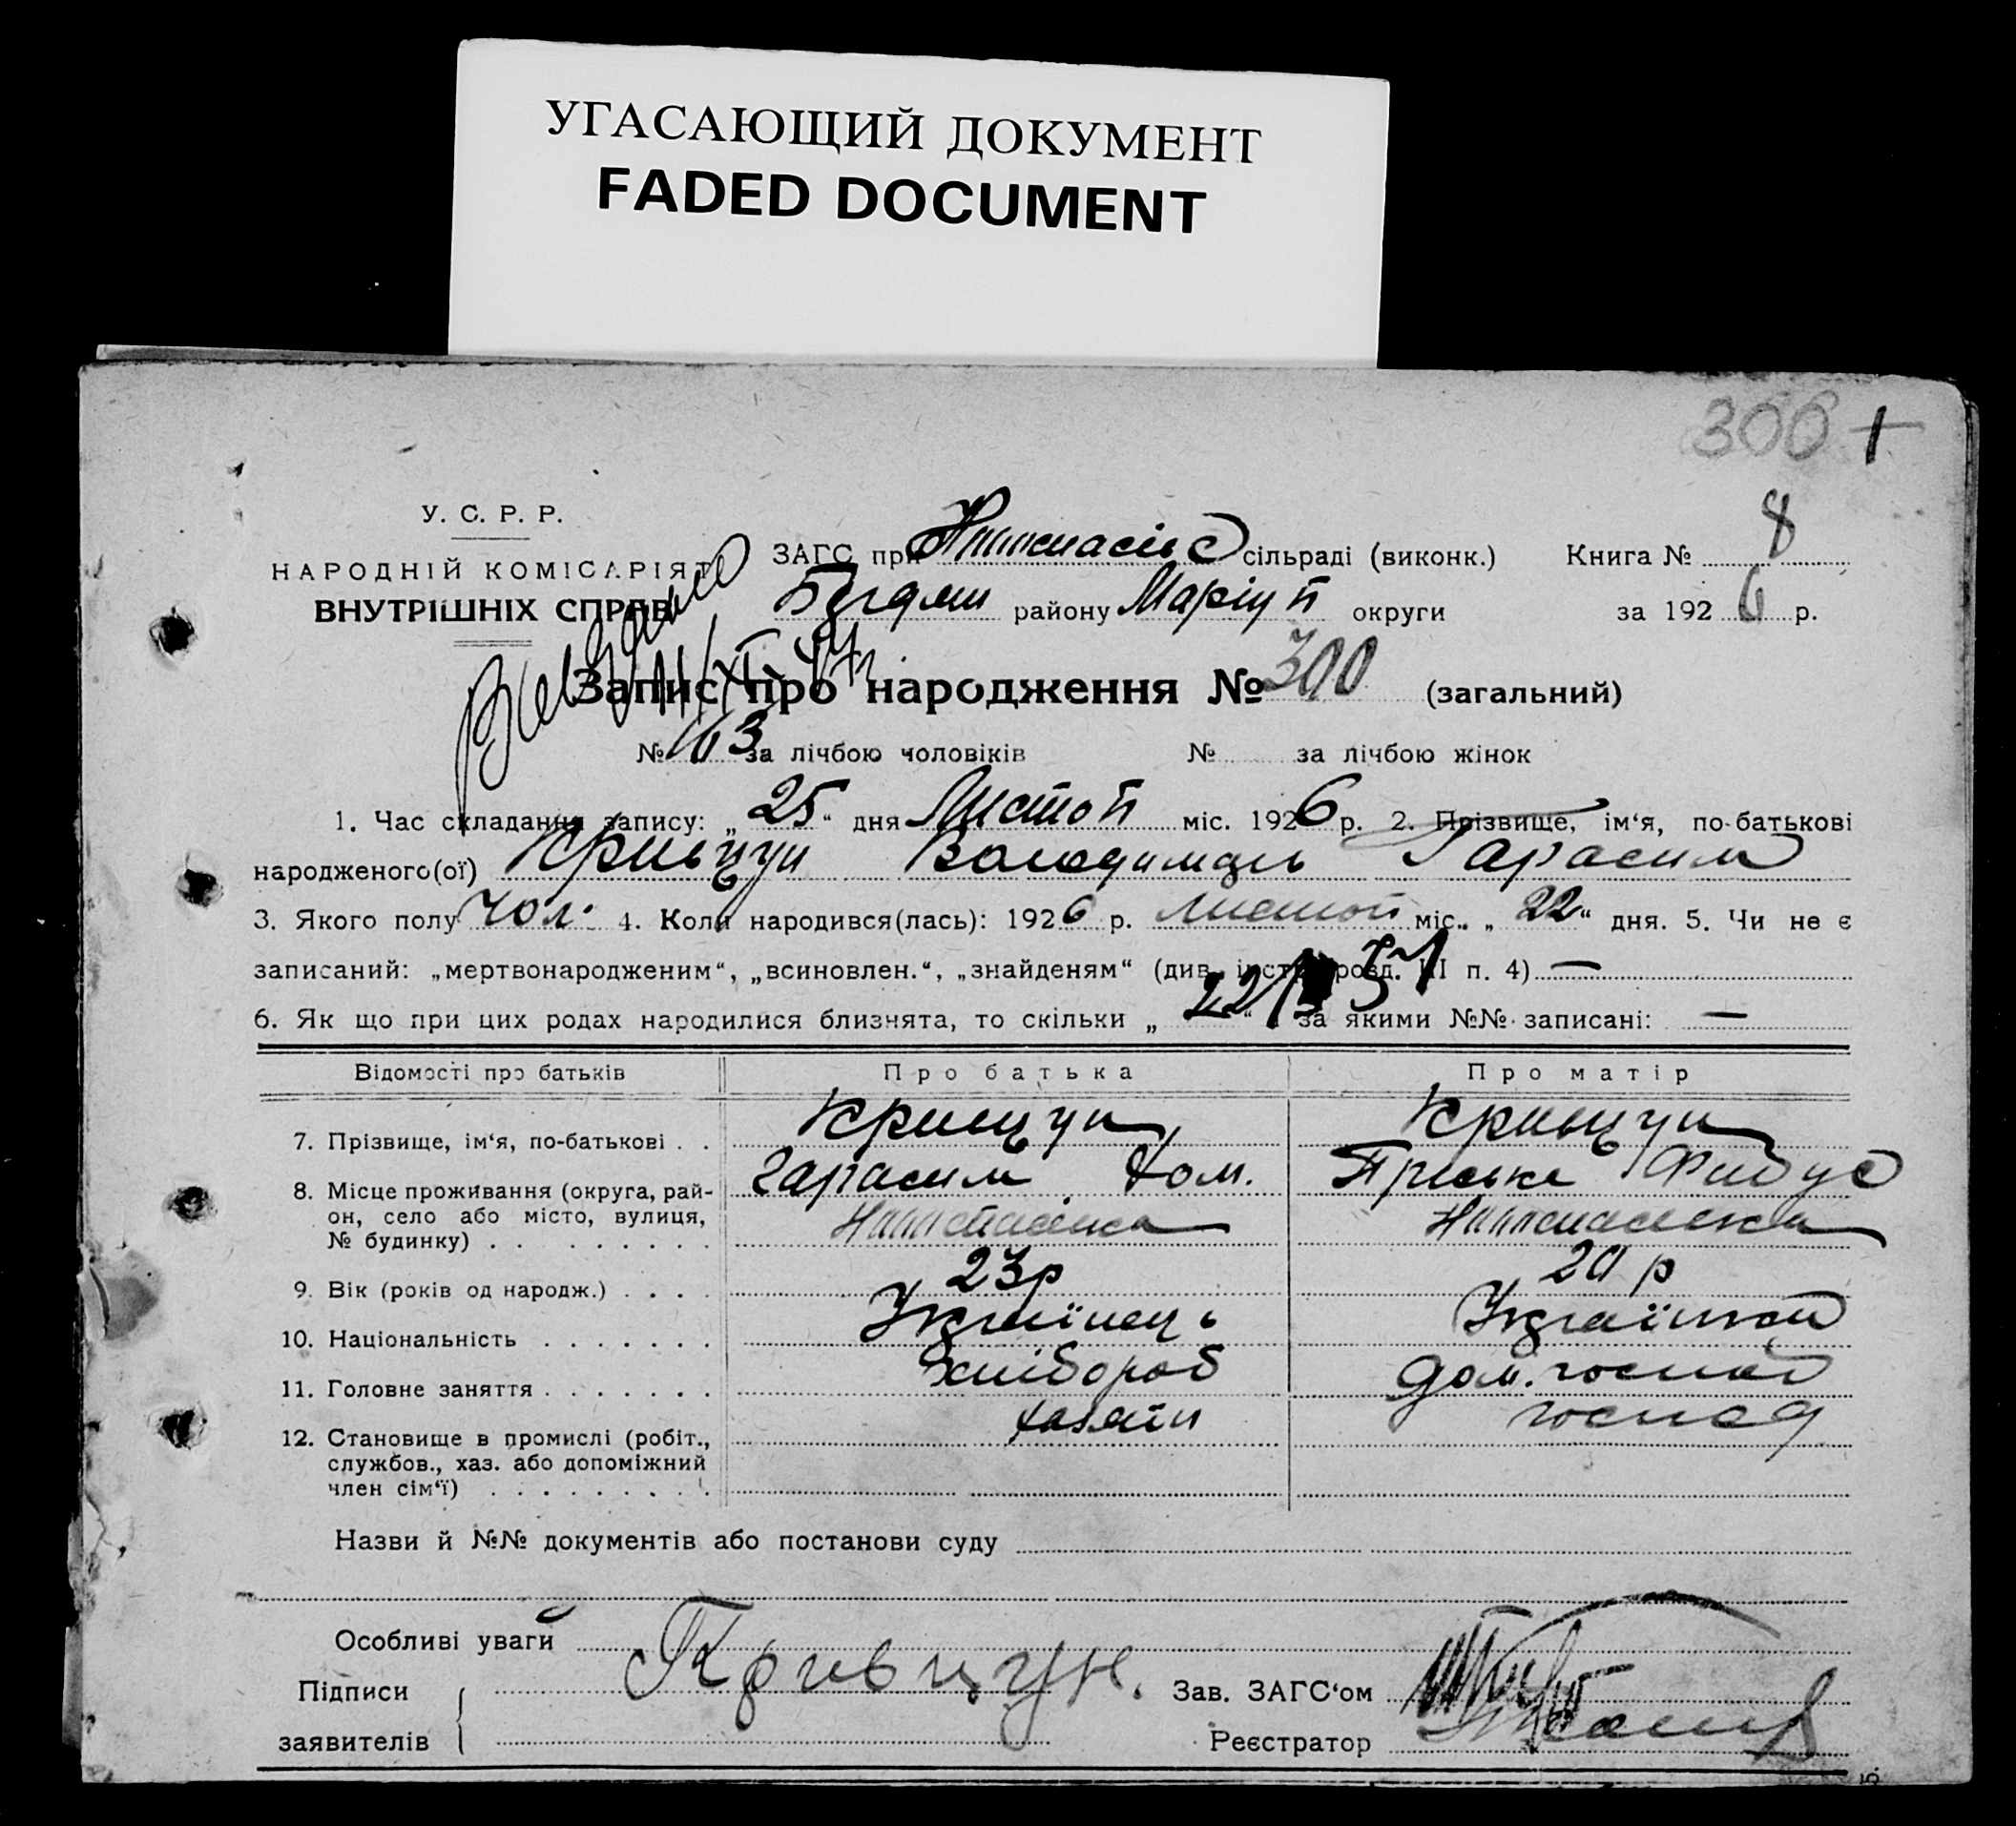 УГАСАЮЩИЙ ДОКУМЕНТ
FADED DOCUMENT
300 1
У. С. Р. Р.
НАРОДНІЙ КОМІСАРІЯТ
ВНУТРІШНІХ СПРАВ
ЗАГС при сільраді (виконк.) Книга № 8
району Маріуп округи за 1926 р.
Запис про народження № 300 (загальний)
№ 163 за лічбою чоловіків № за лічбою жінок
1. Час складання запису: „25“ дня Листоп міс. 1926 р. 2. Прізвище, ім‘я, по-батькові
народженого(ої) Кривцун Володимир Гарасим
3. Якого полу чол. 4. Коли народився(лась): 1926 р. листоп міс. „22“ дня. 5. Чи не є
записаний: „мертвонародженим“, „всиновлен.“, „знайденям“ (див. інстр. розд. III п. 4) —
6. Як що при цих родах народилися близнята, то скільки „ “ за якими №№ записані: —
Відомості про батьків Про батька Про матір
7. Прізвище, ім‘я, по-батькові . . Кривцун Кривцун
Гарасим Хом. Пріська
8. Місце проживання (округа, рай-
он, село або місто, вулиця,
№ будинку) . . . . . . . .
9. Вік (років од народж.) . . . . 23 р 20 р
10. Національність . . . . . . . Українець Українка
11. Головне заняття . . . . . . . Хлібороб дом. господ
12. Становище в промислі (робіт.,
службов., хаз. або допоміжний
член сім‘ї) . . . . . . . . . хазяїн господ
Назви й №№ документів або постанови суду
Особливі уваги
Підписи
заявителів
Кривцун.
Зав. ЗАГС‘ом
Реєстратор